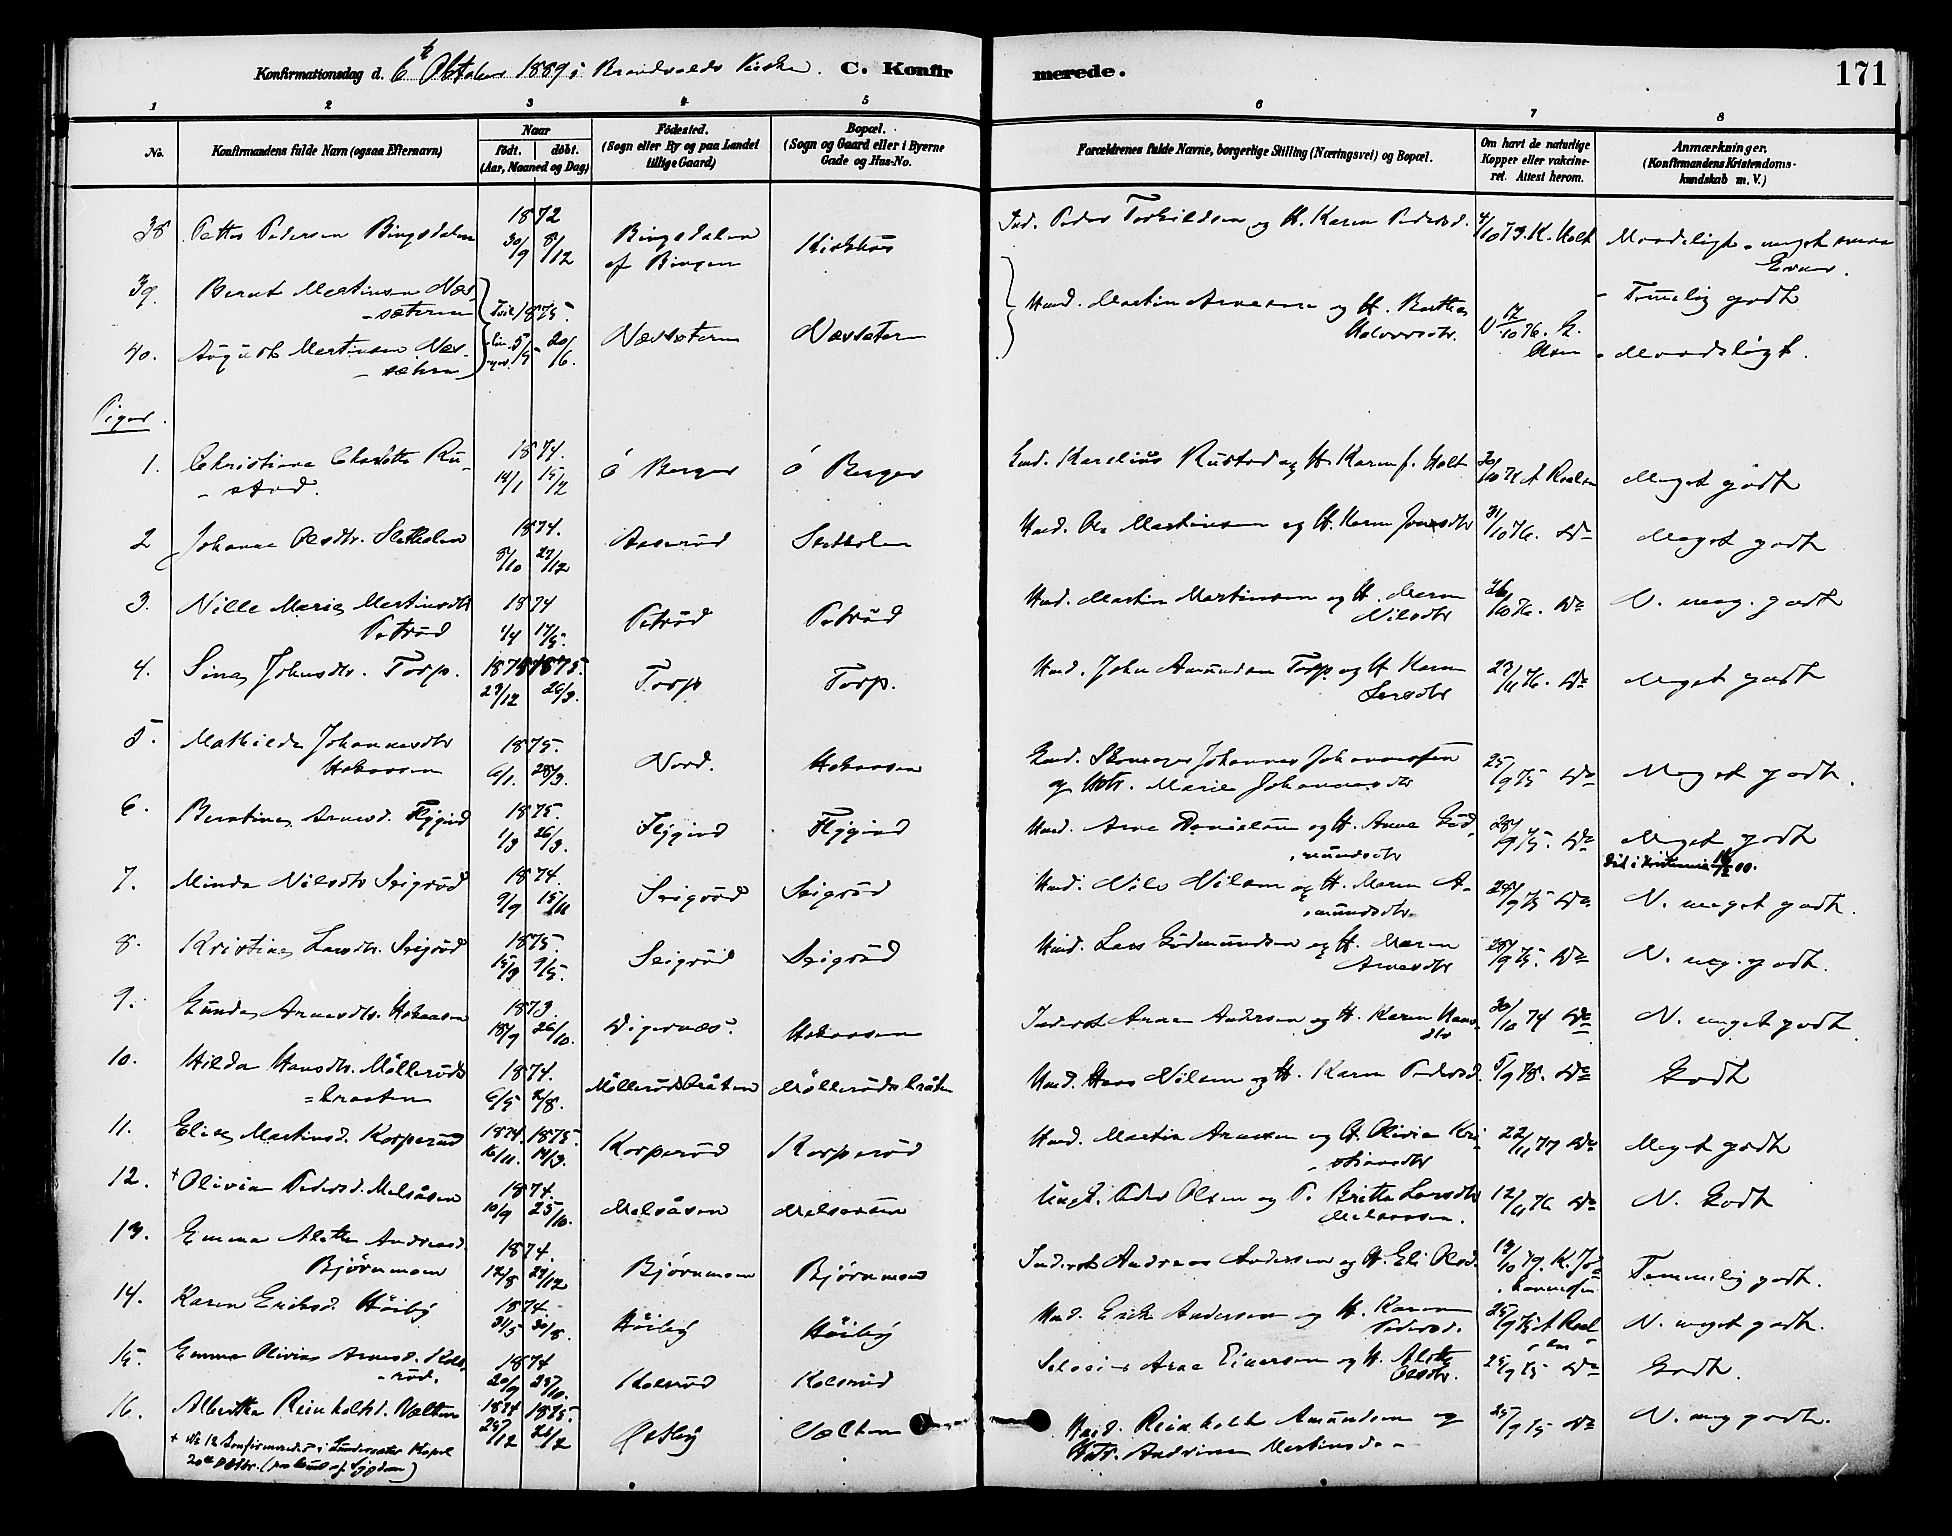 Konfirmationsdag d. 6te Oktober 1889 i Brandvalds Kirke. C. Konfirmerede. 171
1 2 3 4 5 6 7 8
No. Konfirmandens fulde Navn (ogsaa Efternavn) Naar født. døbt. (Aar, Maaned og Dag) Fødested. (Sogn eller By og paa Landet tillige Gaard) Bopæl. (Sogn og Gaard eller i Byerne Gade og Hus-No.
Forældrenes fulde Navne, borgerlige Stilling (Næringsvei) og Bopæl. Om havt de naturlige Kopper eller vakcineret. Attest herom. Anmærkninger. (Konfirmandens Kristendomskundskab m. V.)
38 Petter Pedersen Bingsdalen 1872 30/9 8/12 Bingsdalen af Bingen Ind. Peder Torkildsen og H. Karen Pedersd. K. Holt Maadeligt - meget svage Evner.
39. Bernt Martinsen Næssæteren 1875. Næssæteren Næssæteren Husd. Martin Arnesen og H. Berthe Halvorsdtr. Temmelig godt
40. August Martinsen Næssæteren 5/5 20/6. 17/10 76. G. Olsen - Maadeligt.
Piger.
1. Christiane Charlotte Rustad. 1874. 14/1 15/2 ø Berger ø Berger Gmd. Karelius Rustad og H. Karen f. Holt A Roalsen Meget godt
2 Johanne Olsdtr. Sletholen 1874. 8/10 27/12 Aaserud Sletholen Husd. Ole Martinsen og H. Karen Jonsdtr 31/10 76. Do Meget godt
3. Nille Marie Martinsdtr Petrud 1874 1/4 17/5. Petrud Petrud Husd. Martin Martinsen og H. Maren Nilsdtr 26/10 76. Do N. meg. godt
4. Sina Johnsdtr. Torp. 1874 1875. 29/12 26/3. Torp Torp. Husd. John Amundsen Torp og H. Karen Larsdtr 23/11 76. Do Meget godt
5. Mathilde Johannesdtr Hokaasen 1875. 6/1. 28/3. Nord. Hokaasen Johannes Johannessen og Hstr. Marie Johannesdtr 25/9 75 Do Meget godt.
6. Berntine Arnesd. Flygind 1875. 1/3 26/3. Flygind Flygind Husd. Arne Danielsen og H. Anne Gudmundsdtr 28/9 75. Do Meget godt
7. Minda Nilsdtr Seigrud 1874. 9/9 15/11 Seigrud Seigrud Husd. Nils Nilsen og H. Maren Amundsdtr 28/9 75 Do. N. meget godt.
8. Kristine Larsdtr. Seigrud 1875. 15/3 9/5. Seigrud Seigrud Husd. Lars Gudmundsen og H. Maren Arnesdtr 28/9 75. Do N. meg. godt.
9. Gunda Arnesdtr. Hokaasen 1873. 18/9 26/10. Digernæs. Hokaasen Inderst Arne Andersen og H. Karen Hansdtr 30/10 74 Do N. meget godt.
10. Hilda Hansdtr. Møllerudsbraaten 1874. 6/5 2/8. Møllerudsbråten Møllerudsbråten Husd. Hans Nilsen og H. Karen Pedersd. 5/9 78. Do Godt
11. Elise Martinsd. Korperud 1874. 1875. 16/11. 14/3. Korperud Korperud Husd. Martin Arnesen og H. Olivia Kristiansdtr 22/11 77 Do Meget godt
12. + Olivia Pedersd. Melsåsen 1874. 10/9 25/10. Melsåsen Melsaasen Ungk. Peder Olsen og P. Britta Larsdtr Melaasen. 12/11 76 Do N. Godt
13. Emma Alette Andreasd. Bjørnmoen 1874. 12/8 27/12 Bjørnmoen Bjørnmoen Inderst Andreas Andersen og H. Eli Olsd. 13/10 79. K. Johannessen Temmelig godt.
14. Karen Eriksd. Høiby 1874. 31/5 30/8. Høiby Høiby Husd. Erik Andersen og H. Karen Pedersd. 25/9 75 A Roalsen N. meget godt.
15. Emma Olivia Arnesd. Kolsrud. 1874 20/9 25/10. Kolsrud Kolsrud Selveier Arne Eiversen og H. Alette Olsdtr. 25/9 75 Do Godt.
16. Albertha Reinholtsd. Velten 1874 1875. 25/12 21/2 Østby Velten Husd. Reinholt Amundsen og Hstr. Andrine Martinsd. 25/9 75 Do N. meg godt.
+ No 12 konfirmeredes i Lundersæter Kapel
20de Oktbr.